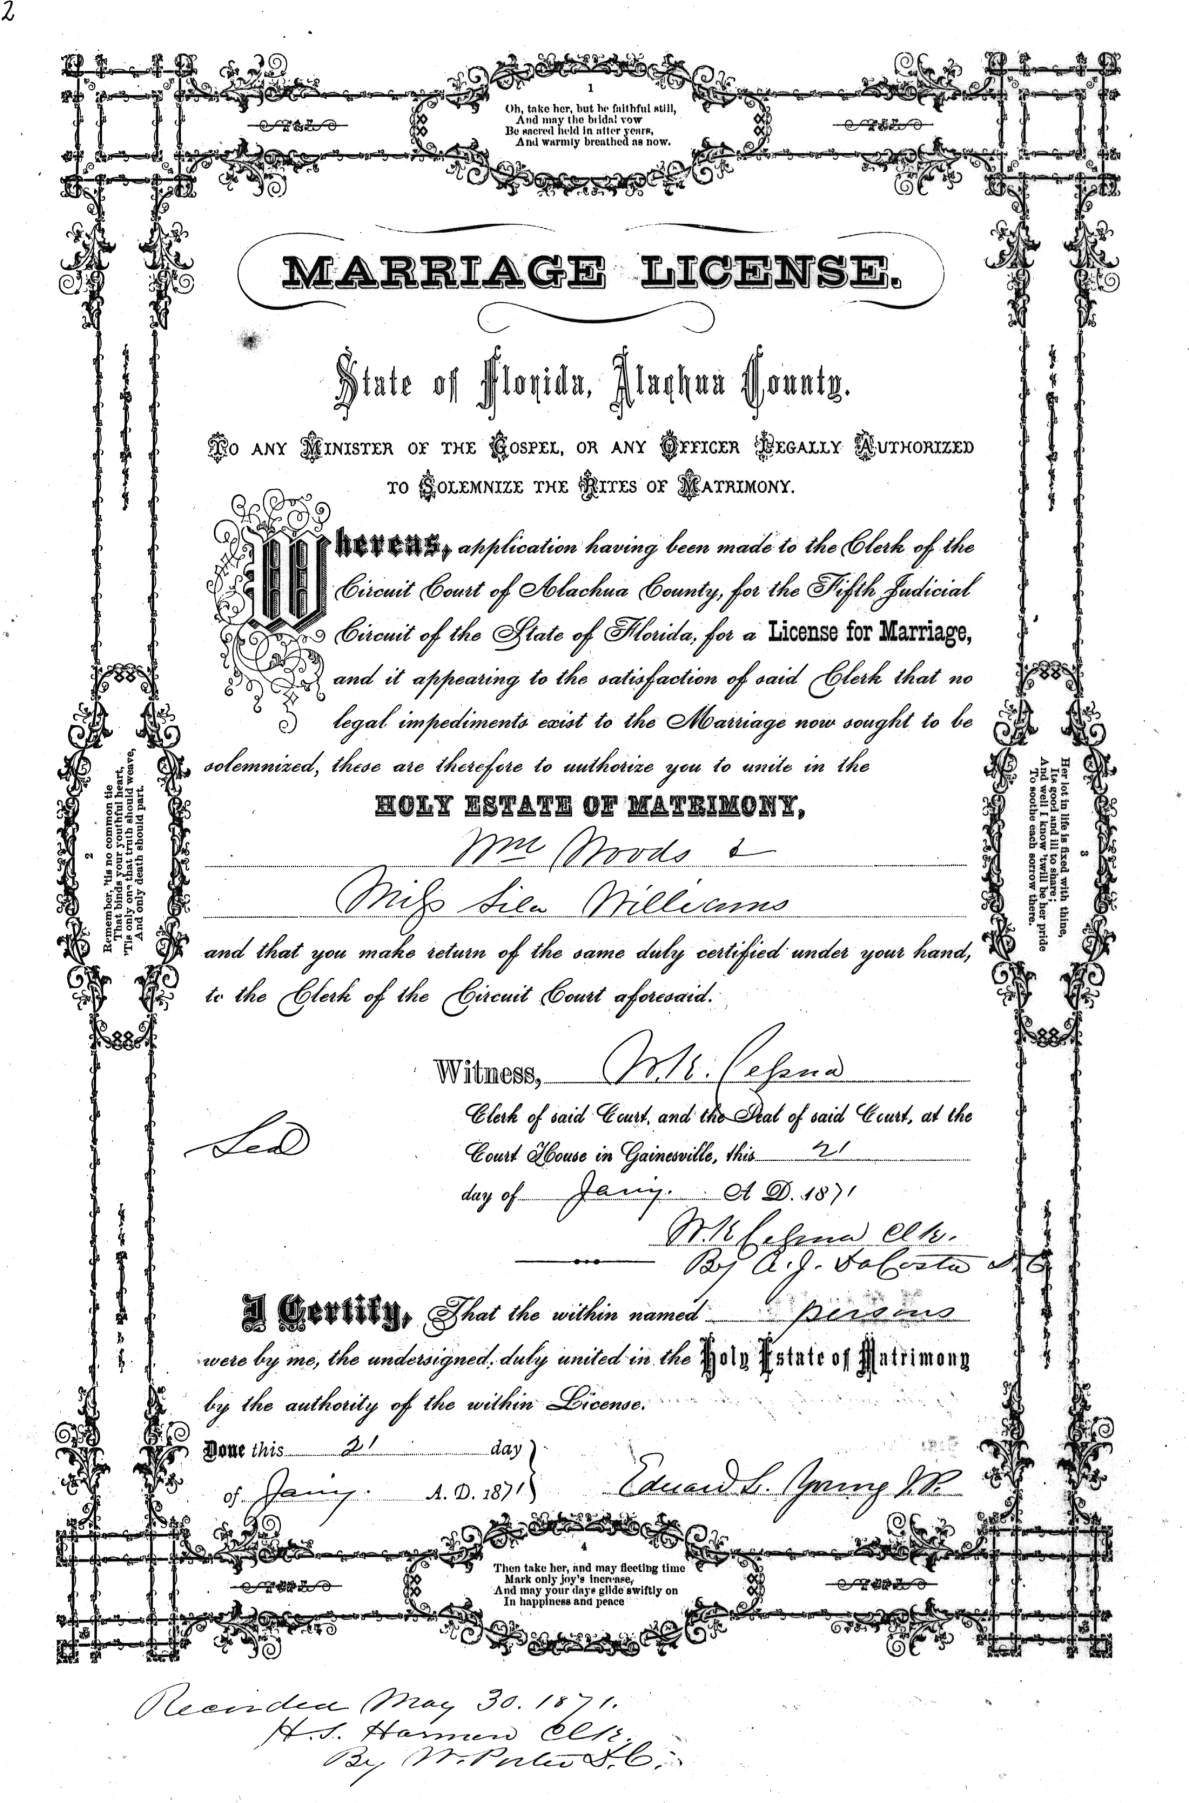 2
1
Oh, take her, but be faithful still,
And may the bridal vow
Be sacred held in after years,
And warmly breathed as now.
MARRIAGE LICENSE.
State of Florida, Alachua County.
TO ANY MINISTER OF THE GOSPEL, OR ANY OFFICER LEGALLY AUTHORIZED
TO SOLEMNIZE THE RITES OF MATRIMONY.
Whereas, application having been made to the Clerk of the
Circuit Court of Alachua County, for the Fifth Judicial
Circuit of the State of Florida, for a License for Marriage,
and it appearing to the satisfaction of said Clerk that no
legal impediments exist to the Marriage now sought to be
solemnized, these are therefore to authorize you to unite in the
HOLY ESTATE OF MATRIMONY,
Wm Woods &
Miss Sila Williams
and that you make return of the same duly certified under your hand,
to the Clerk of the Circuit Court aforesaid.
2
Remember, 'tis no common tie
That binds your youthful heart,
'Tis only one that truth should weave,
And only death should part.
3
Her lot in life is fixed with thine,
Its good and ill to share;
And well I know 'twill be her pride
To soothe each sorrow there.
Witness, W. K. Cessna
Clerk of said Court, and the Seal of said Court, at the
Seal
Court House in Gainesville, this 21
day of Jany. A. D. 1871
W. K Cessna Clk.
By A. J. DaCosta D. C
I Certify, That the within named persons
were by me, the undersigned, duly united in the Holy Estate of Matrimony
by the authority of the within License.
Done this 21 day
of Jany. A. D. 1871
Edward L. Young J. P.
4
Then take her, and may fleeting time
Mark only joy's increase,
And may your days glide swiftly on
In happiness and peace
Recorded May 30. 1871.
H. S. Harmon Clk.
By W. Porter D. C.